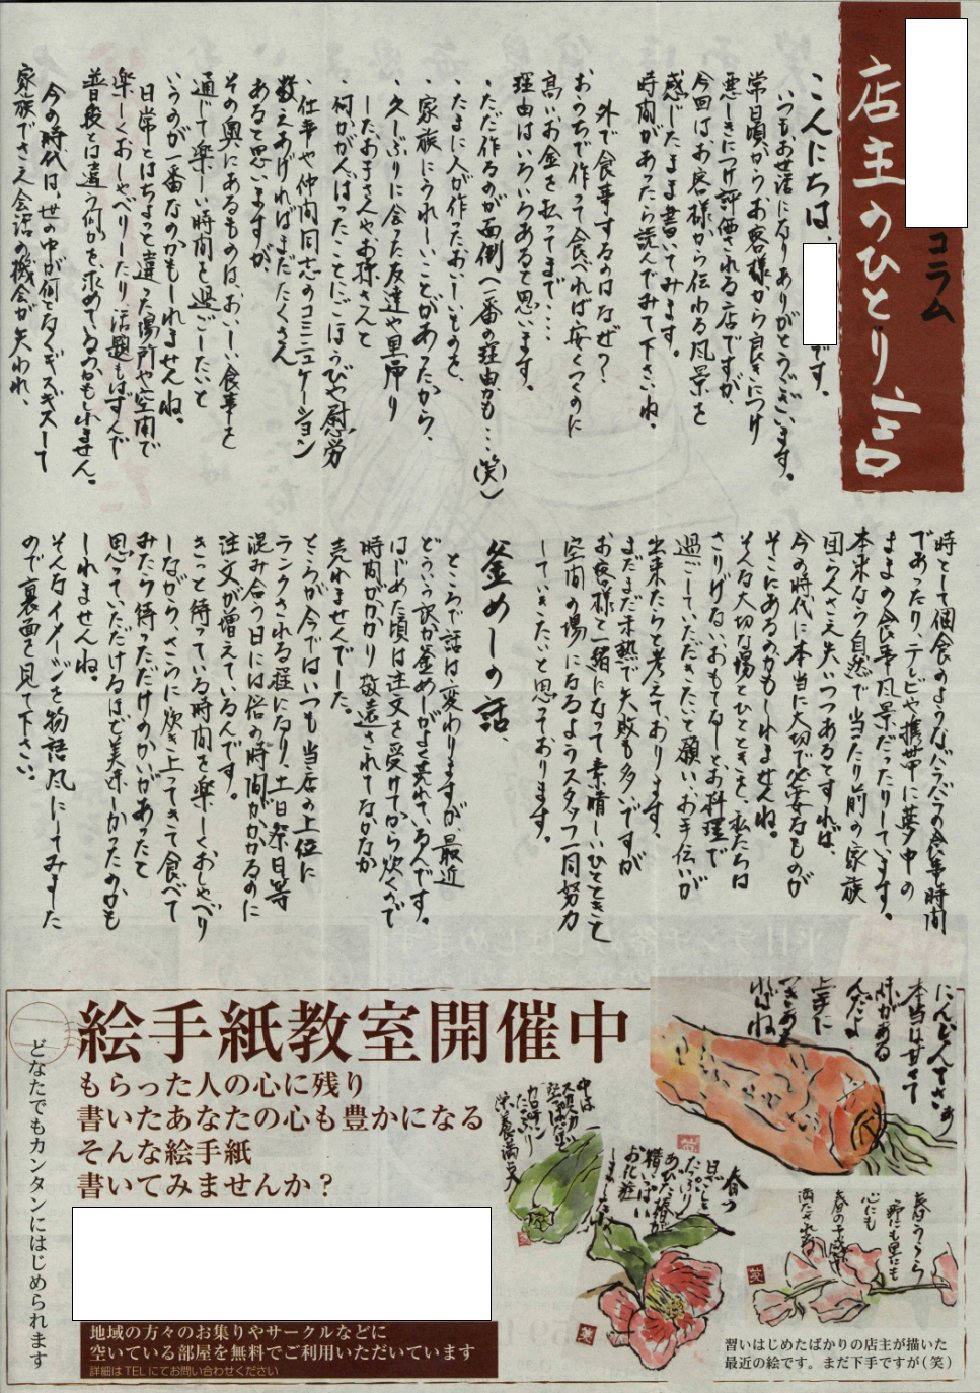 コラム
店主のひとり言
こんにちは、
です。
いつもお世話になりありがとうございます。
常日頃からお客様から良きにつけ
悪しきにつけ評価される店ですが、
今回はお客様から伝わる風景を
感じたまま書いてみます。
時間があったら読んでみて下さいね。
外で食事するのはなぜ？
おうちで作って食べれば安くつくのに
高いお金を払ってまで・・・・
理由はいろいろあると思います。
・ただ作るのが面倒(一番の理由かも…(笑))
・たまに人が作ったおいしいものを、
・家族にうれしいことがあったから、
・久しぶりに会った友達や里帰り
したお子さんやお孫さんと
・何かがんばったことにごほうびや慰労
・仕事や仲間同志のコミニュケーション
数えあげればまだたくさん
あると思いますが、
その奥にあるものは、おいしい食事を
通じて楽しい時間を過ごしたいと
いうのが一番なのかもしれませんね。
日常とはちょっと違った場所や空間で
楽しくおしゃべりしたり、話題もはずんで
普段とは違う何かを求めているのかもしれません。
今の時代は、世の中が何となくギスギスして
家族でさえ会話の機会が失われ、
時として個食のようなバラバラの食事時間
であったり、テレビや携帯に夢中の
ままの食事風景だったりしています。
本来なら自然で当たり前の家族
団らんさえ失いつつあるとすれば、
今の時代に本当に大切で必要なものが
そこにあるのかもしれませんね。
そんな大切な場とひとときを、私たちは
さりげないおもてなしとお料理で
過ごしていただきたいと願い、お手伝いが
出来たらと考えております。
まだまだ未熟で失敗も多いですが
お客様と一緒になって素晴しいひとときと
空間の場になるようスタッフ一同努力
していきたいと思っております。
釜めしの話、
ところで話は変わりますが、最近
どういう訳か釜めしがよく売れているんです。
はじめた頃は注文を受けてから炊くので
時間がかかり敬遠されてなかなか
売れませんでした。
ところが今ではいつも当店の上位に
ランクされる程になり、土日祭日等
混み合う日には倍の時間がかかるのに
注文が増えているんです。
きっと待っている時間を楽しくおしゃべり
しながら、さらに炊き上ってきて食べて
みたら待っただけのかいがあったと
思っていただけるほど美味しかったのかも
しれませんね。
そんなイメージを物語風にしてみました
ので裏面を見て下さい。
絵手紙教室開催中
どなたでもカンタンにはじめられます
もらった人の心に残り
書いたあなたの心も豊かになる
そんな絵手紙
書いてみませんか？
地域の方々のお集りやサークルなどに
空いている部屋を無料でご利用いただいています
詳細はTELにてお問い合わせください
にんじんてさぁ
本当は甘くて
味がある
んだよ
上手に
つきあ
ればね
栄養満点
春の
たっぷり
あびた椿が
精いっぱい
お化粧
しました
春うらら
野にも里にも
心にも
春の予感に
満たされる
習いはじめたばかりの店主が描いた
最近の絵です。まだ下手ですが(笑)